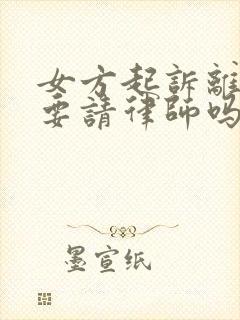 女方起訴離
要請律師嗎
墨宣纸